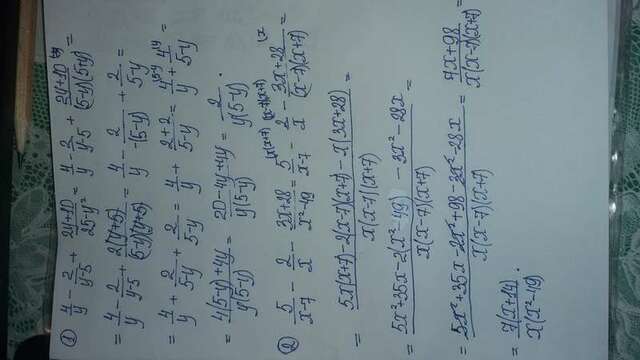 ① 4/y - 2/(y-5) + (2y+10)/(25-y²) = 4/y - 2/(y-5) + (2y+10)/((5-y)(5+y)) =
= 4/y - 2/(y-5) + 2(y+5)/((5-y)(y+5)) = 4/y - 2/(-(5-y)) + 2/(5-y) =
= 4/y + 2/(5-y) + 2/(5-y) = 4/y + (2+2)/(5-y) = 4^(5-y/y + 4^(y/(5-y) =
= (4(5-y)+4y)/(y(5-y)) = (20-4y+4y)/(y(5-y)) = 2/(y(5-y)).
② 5/(x-7) - 2/x - (3x+28)/(x²-49) = 5^(x(x+7)/(x-7) - 2^(x-7)(x+7)/x - (3x+28)^(x/((x-7)(x+7)) =
= (5x(x+7)-2(x-7)(x+7)-x(3x+28))/(x(x-7)(x+7)) =
= (5x²+35x-2(x²-49)-3x²-28x)/(x(x-7)(x+7)) =
= (5x²+35x-2x²+98-3x²-28x)/(x(x-7)(x+7)) = (7x+98)/(x(x-7)(x+7)) =
= 7(x+14)/(x(x²-49)).